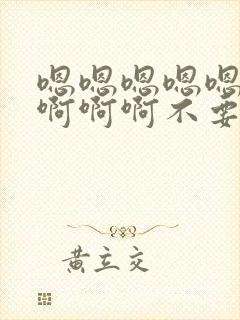 嗯嗯嗯嗯嗯
啊啊啊不要
黄立交